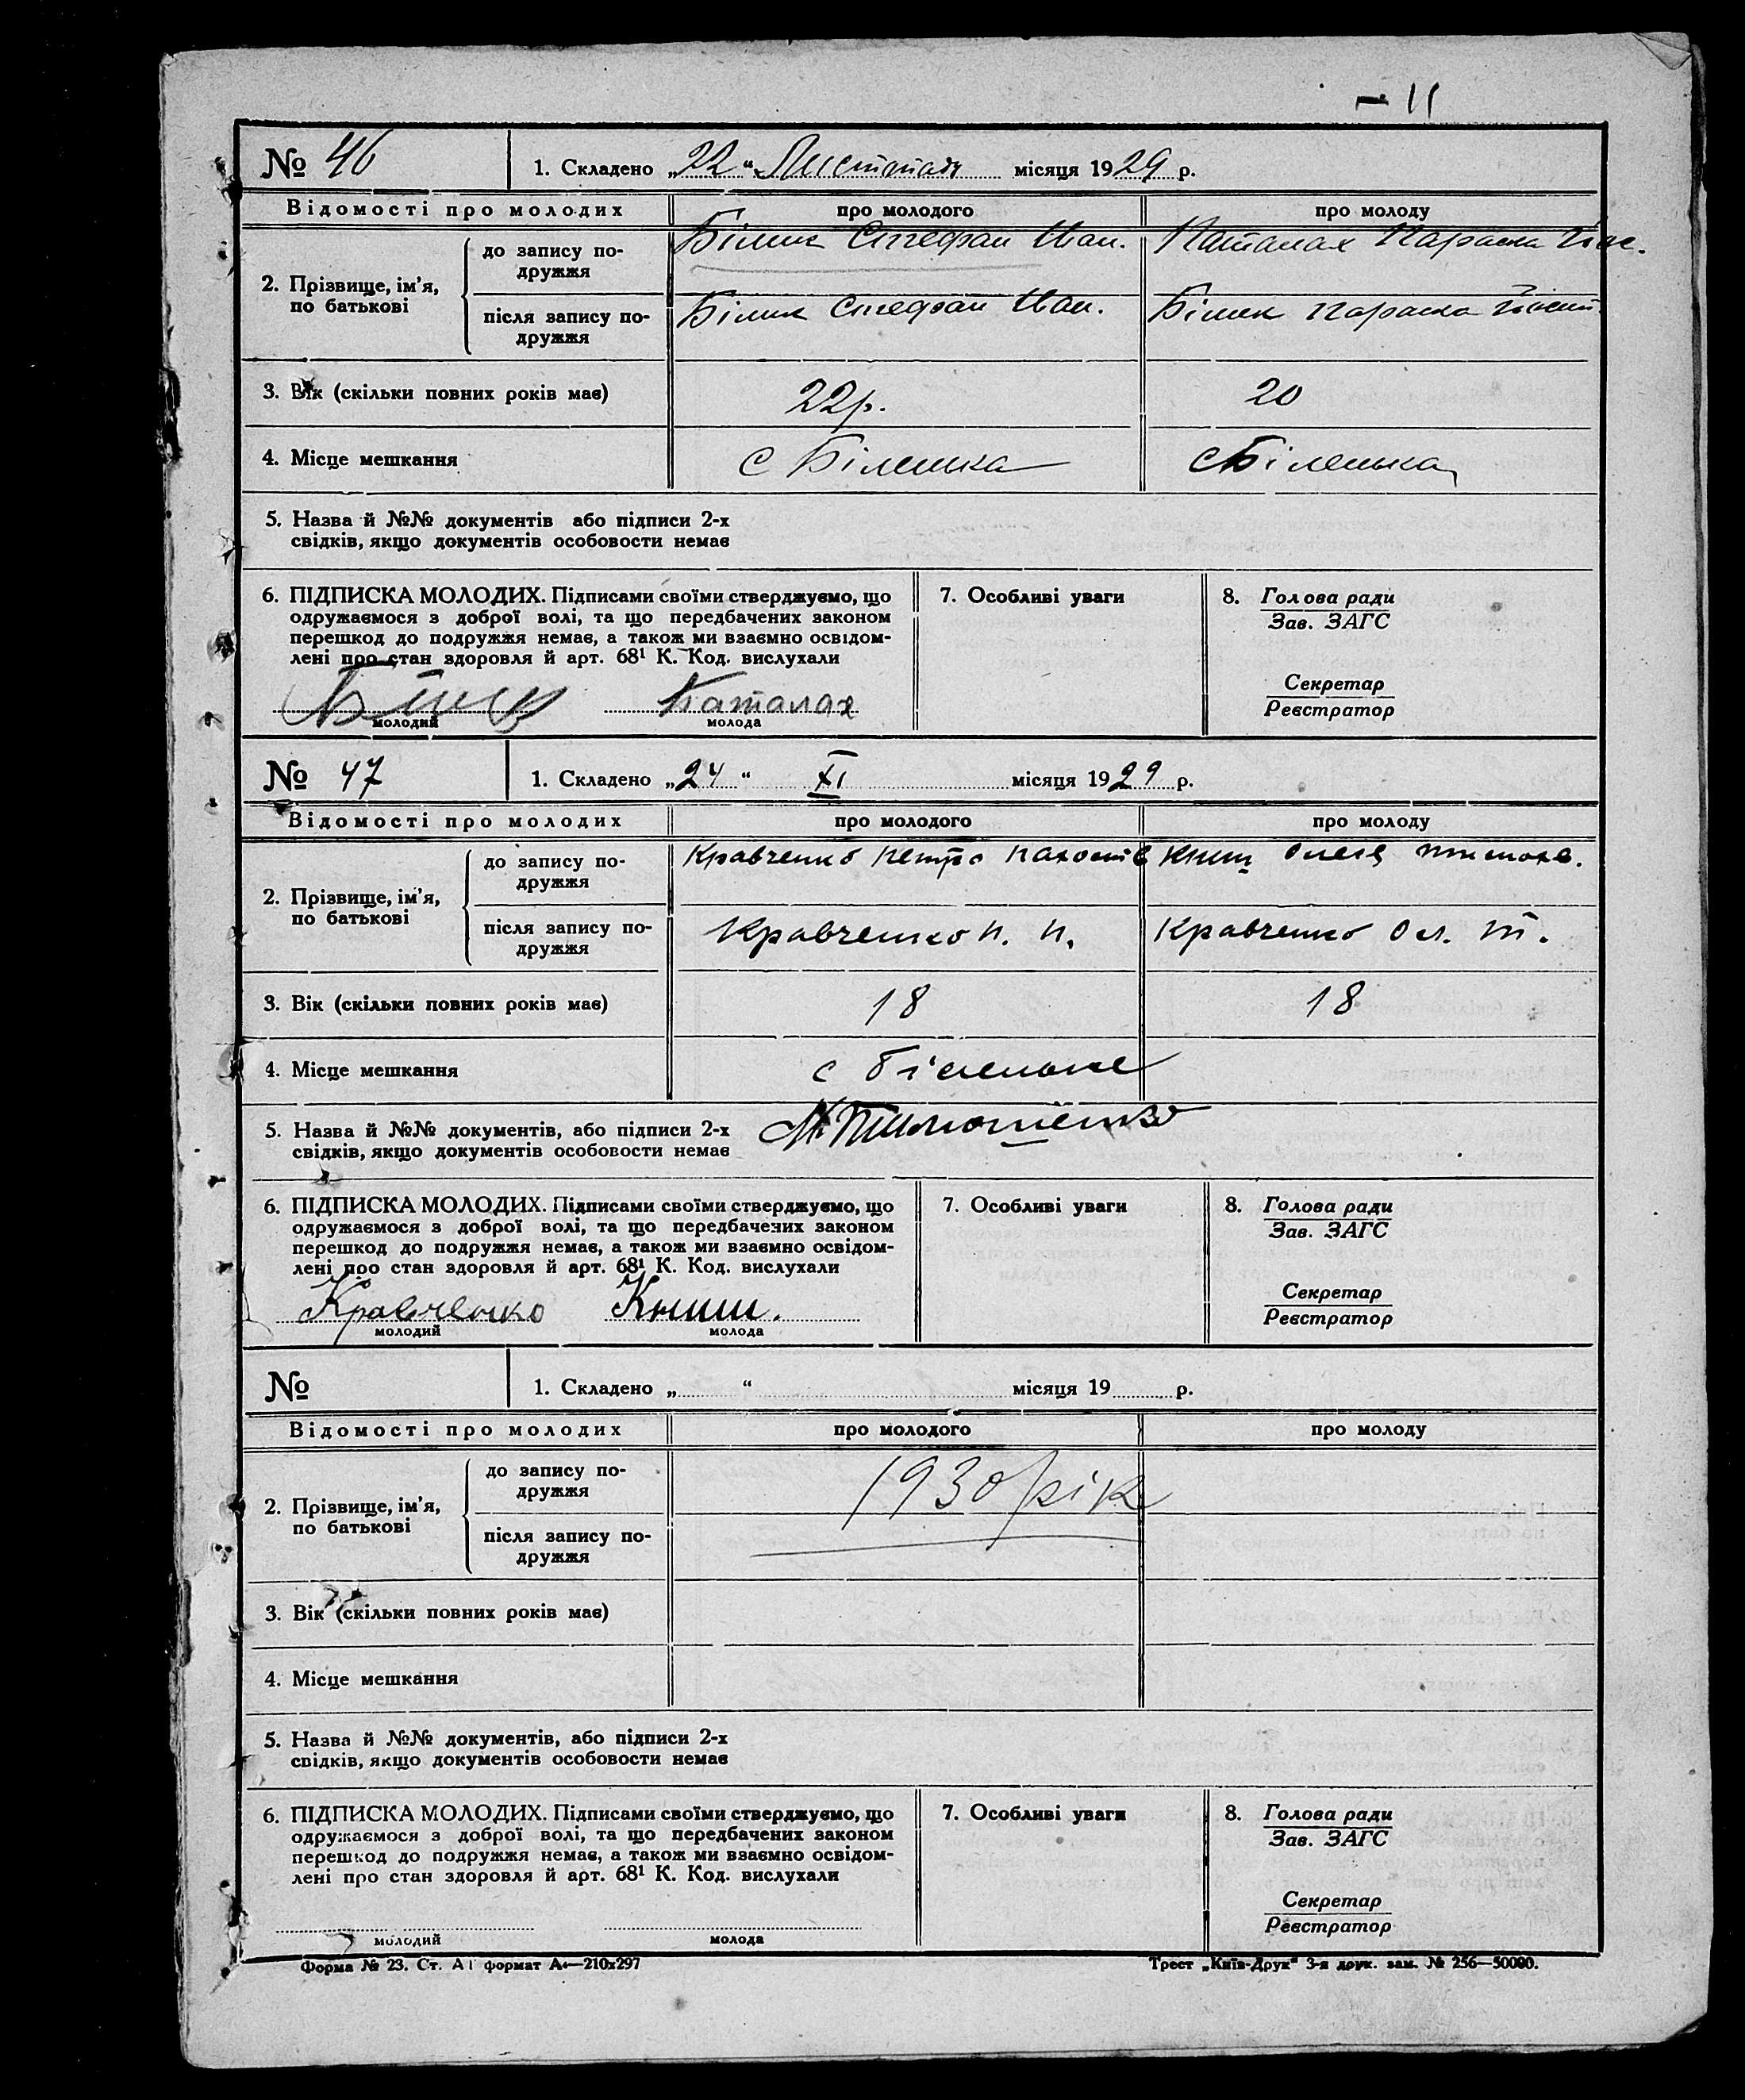 – 11
№ 46 1. Складено „22“ Листопада місяця 1929 р.
Відомості про молодих про молодого про молоду
2. Прізвище, ім’я, по батькові
до запису по-
дружжя
Білик Стефан Иван. Паталах Параска
після запису по-
дружжя
Білик Стефан Иван. Білик Параска
3. Вік (скільки повних років має) 22р. 20
4. Місце мешкання с Біленька с Біленька
5. Назва й №№ документів або підписи 2-х
свідків, якщо документів особовости немає
6. ПІДПИСКА МОЛОДИХ. Підписами своїми стверджуємо, що
одружаємося з доброї волі, та що передбачених законом
перешкод до подружжя немає, а також ми взаємно освідом-
лені про стан здоровля й арт. 68¹ К. Код. вислухали
Білик Паталах
молодий молода
7. Особливі уваги
8. Голова ради
Зав. ЗАГС
Секретар
Реєстратор
№ 47 1. Складено „24“ XI місяця 1929 р.
Відомості про молодих про молодого про молоду
2. Прізвище, ім’я, по батькові
до запису по-
дружжя
Кравченко Петро Книш
після запису по-
дружжя
Кравченко П. П. Кравченко Ол. Т.
3. Вік (скільки повних років має) 18 18
4. Місце мешкання с Біленьке
5. Назва й №№ документів, або підписи 2-х
свідків, якщо документів особовости немає
6. ПІДПИСКА МОЛОДИХ. Підписами своїми стверджуємо, що
одружаємося з доброї волі, та що передбачених законом
перешкод до подружжя немає, а також ми взаємно освідом-
лені про стан здоровля й арт. 68¹ К. Код. вислухали
Кравченко Книш.
молодий молода
7. Особливі уваги
8. Голова ради
Зав. ЗАГС
Секретар
Реєстратор
№ 1. Складено „ “ місяця 19 р.
Відомості про молодих про молодого про молоду
2. Прізвище, ім’я, по батькові
до запису по-
дружжя
1930 рік
після запису по-
дружжя
3. Вік (скільки повних років має)
4. Місце мешкання
5. Назва й №№ документів, або підписи 2-х
свідків, якщо документів особовости немає
6. ПІДПИСКА МОЛОДИХ. Підписами своїми стверджуємо, що
одружаємося з доброї волі, та що передбачених законом
перешкод до подружжя немає, а також ми взаємно освідом-
лені про стан здоровля й арт. 68¹ К. Код. вислухали
молодий молода
7. Особливі уваги
8. Голова ради
Зав. ЗАГС
Секретар
Реєстратор
Форма № 23. Ст. А1 формат А4—210х297 Трест „Київ-Друк“ 3-я друк. зам. № 256—50000.